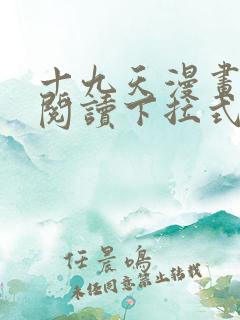 十九天漫畫
閱讀下拉式
任晨鳴
未经同意禁止转载